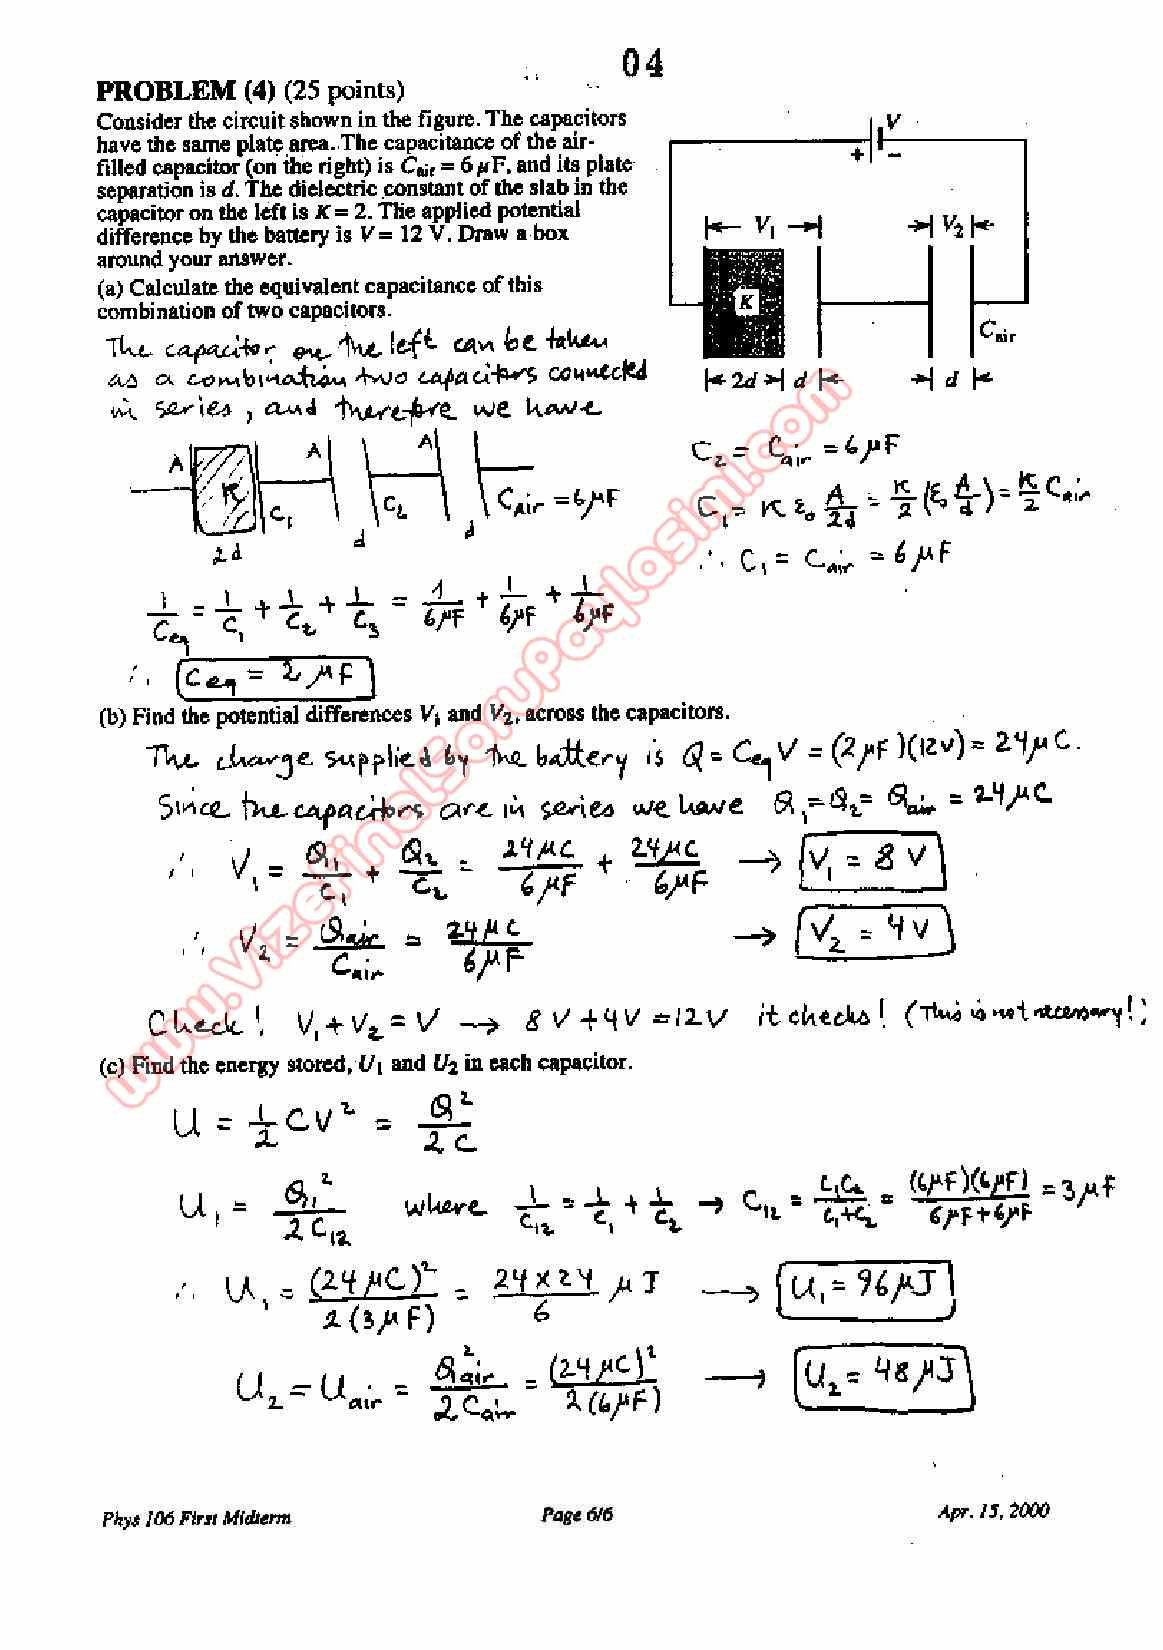 04
PROBLEM (4) (25 points)
Consider the circuit shown in the figure. The capacitors
have the same plate area. The capacitance of the air-
filled capacitor (on the right) is Cair = 6 μF, and its plate
separation is d. The dielectric constant of the slab in the
capacitor on the left is K = 2. The applied potential
difference by the battery is V = 12 V. Draw a box
around your answer.
(a) Calculate the equivalent capacitance of this
combination of two capacitors.
V
+ −
V1 V2
K
Cair
2d d d
The capacitor on the left can be taken
as a combination two capacitors connected
in series, and therefore we have
A A A
K C1 C2 CAir = 6μF
2d d d
C2 = Cair = 6μF
C1 = K ε0 A/2d = K/2 (ε0 A/d) = K/2 Cair
∴ C1 = Cair = 6μF
1/Ceq = 1/C1 + 1/C2 + 1/C3 = 1/6μF + 1/6μF + 1/6μF
∴ Ceq = 2μF
(b) Find the potential differences V1 and V2, across the capacitors.
The charge supplied by the battery is Q = Ceq V = (2μF)(12V) = 24μC.
Since the capacitors are in series we have Q1 = Q2 = Qair = 24μC
∴ V1 = Q1/C1 + Q2/C2 = 24μC/6μF + 24μC/6μF → V1 = 8V
∴ V2 = Qair/Cair = 24μC/6μF → V2 = 4V
Check! V1 + V2 = V → 8V + 4V = 12V it checks! (This is not necessary!)
(c) Find the energy stored, U1 and U2 in each capacitor.
U = 1/2 CV² = Q²/2C
U1 = Q1²/2C12 where 1/C12 = 1/C1 + 1/C2 → C12 = C1C2/C1+C2 = (6μF)(6μF)/6μF+6μF = 3μF
∴ U1 = (24μC)²/2(3μF) = 24×24/6 μJ → U1 = 96μJ
U2 = Uair = Qair²/2Cair = (24μC)²/2(6μF) → U2 = 48μJ
Phys 106 First Midterm Page 6/6 Apr. 15, 2000
www.VizeFinalSoruPaylasimi.com